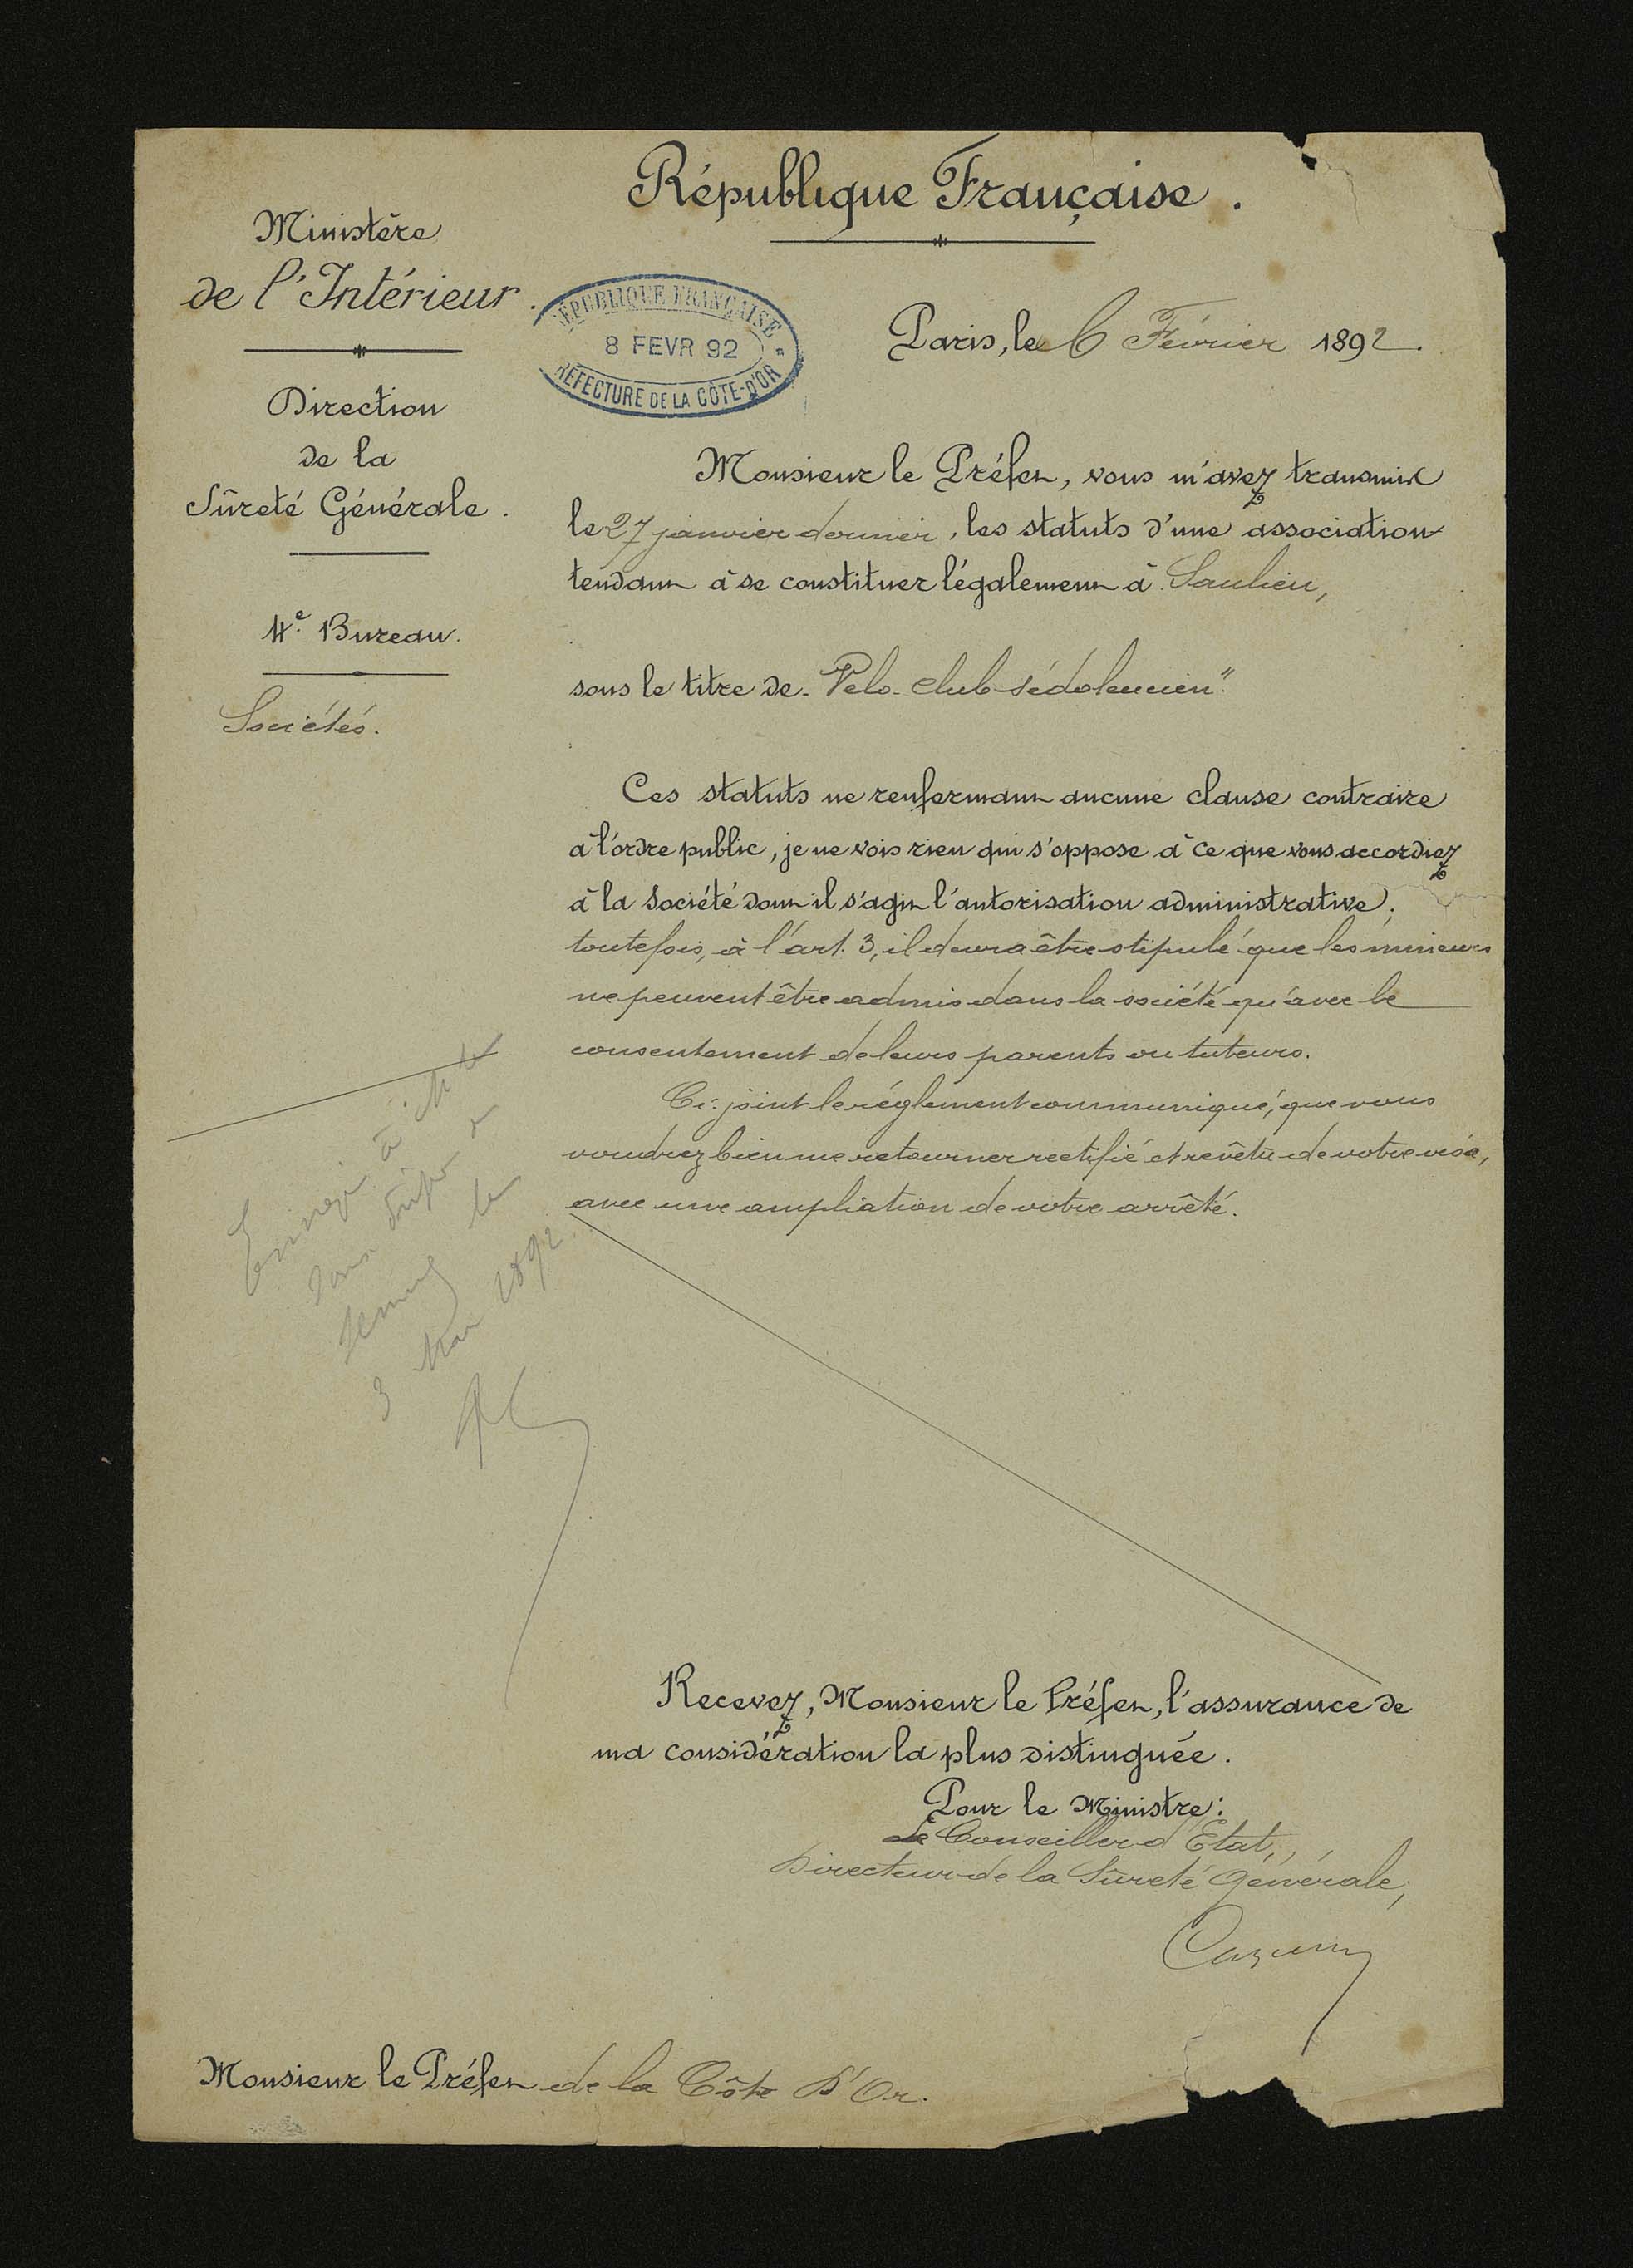 République Française.
Ministère
de l'Intérieur.
Direction
de la
Sûreté Générale.
4e. Bureau.
Sociétés.
RÉPUBLIQUE FRANÇAISE
8 FEVR 92
PRÉFECTURE DE LA CÔTE-D'OR
Paris, le 6 Février 1892.
Monsieur le Préfet, vous m'avez transmis
le 27 janvier dernier, les statuts d'une association
tendant à se constituer légalement à Saulieu,
sous le titre de "Velo-club sédoleucien".
Ces statuts ne renfermant aucune clause contraire
à l'ordre public, je ne vois rien qui s'oppose à ce que vous accordiez
à la Société dont il s'agit l'autorisation administrative.
toutefois, à l'art. 3, il devra être stipulé que les mineurs
ne peuvent être admis dans la société qu'avec le
consentement de leurs parents ou tuteurs.
Ci-joint le réglement communiqué, que vous
voudrez bien me retourner rectifié et revêtu de votre visa,
avec une ampliation de votre arrêté.
à
le
3 1892
Recevez, Monsieur le Préfet, l'assurance de
ma considération la plus distinguée.
Pour le Ministre:
Le Conseiller d'Etat,
Directeur de la Sûreté Générale,
Monsieur le Préfet de la Côte d'Or.